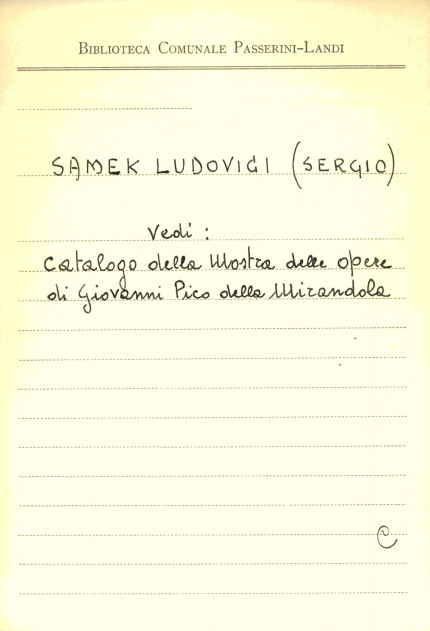 BIBLIOTECA COMUNALE PASSERINI-LANDI
SAMEK LUDOVICI (SERGIO)
Vedi :
Catalogo della Mostra delle opere
di Giovanni Pico della Mirandola
C